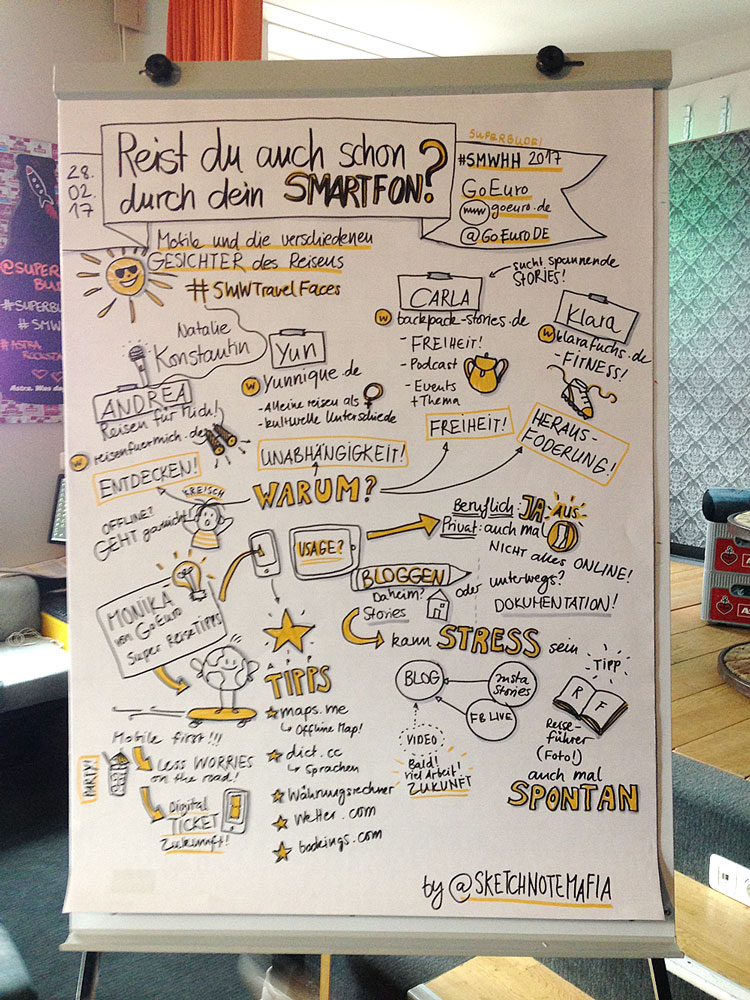 28.
02.
17
Reist du auch schon
durch dein SMARTFON?
SUPERBUDE!
#SMWHH 2017
GoEuro
www goeuro.de
@GoEuroDE
Mobile und die verschiedenen
GESICHTER des Reisens
#SMWTravelFaces
sucht spannende
STORIES!
Natalie
Konstantin
ANDREA
Reisen für Mich!
w reisenfuermich.de
ENTDECKEN!
Yun
w Yunnique.de
- Alleine reisen als ♀
- kulturelle Unterschiede
UNABHÄNGIGKEIT!
CARLA
w backpack-stories.de
- FREIHEIT!
- Podcast
- Events
+ Thema
FREIHEIT!
Klara
w klarafuchs.de
- FITNESS!
HERAUS-
FODERUNG!
WARUM?
KREISCH
OFFLINE?
GEHT garnicht!
USAGE?
Beruflich: JA
AUS
Privat: auch mal
NICHT alles ONLINE!
BLOGGEN
Daheim? oder unterwegs?
Stories
DOKUMENTATION!
kann STRESS sein
MONIKA
von GoEuro
Super ReiseTIPPS
Mobile first!!!
PARTY!
LESS WORRIES
on the road!
Digital
TICKET
Zukunft!
APP
TIPPS
maps.me
↳ Offline Map!
dict.cc
↳ Sprachen
Währungsrechner
Wetter.com
bookings.com
BLOG
Insta
Stories
FB LIVE
VIDEO
Bald!
viel Arbeit!
ZUKUNFT
TIPP
R F
Reise-
führer
(Foto!)
auch mal
SPONTAN
by @SKETCHNOTEMAFIA
@SUPER
BUD
#SUPERBU
#SMW
#ASTRA
ROCKSTA
Astra. Was da